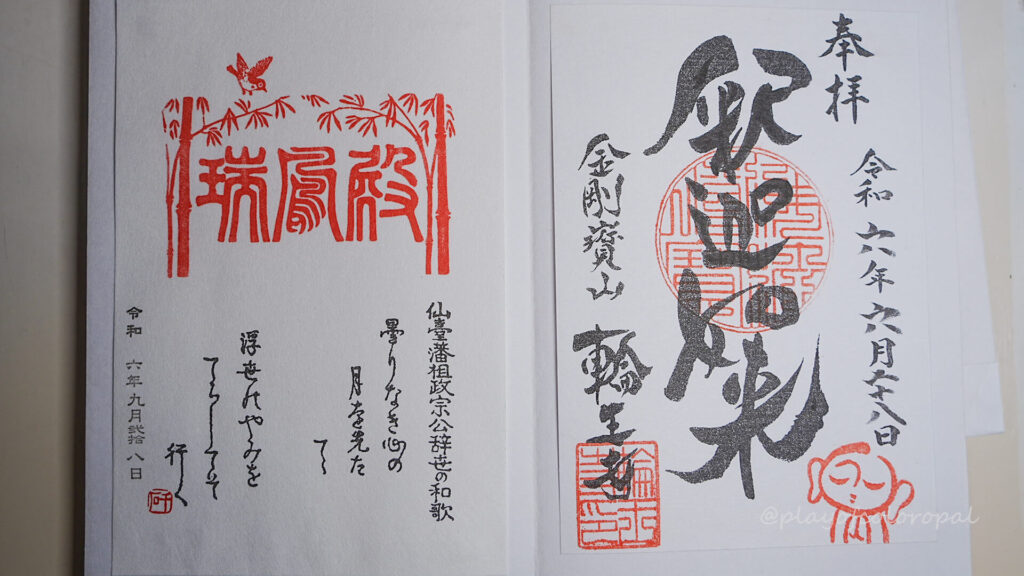 奉拝
令和六年六月二十八日
釈迦如来
金剛寶山
輪王寺
輪王寺印
瑞鳳殿
仙臺藩祖政宗公辞世の和歌
曇りなき心の
月を先た
てゝ
浮世のやみを
てらしてそ
行く
令和 六年九月貳拾八日